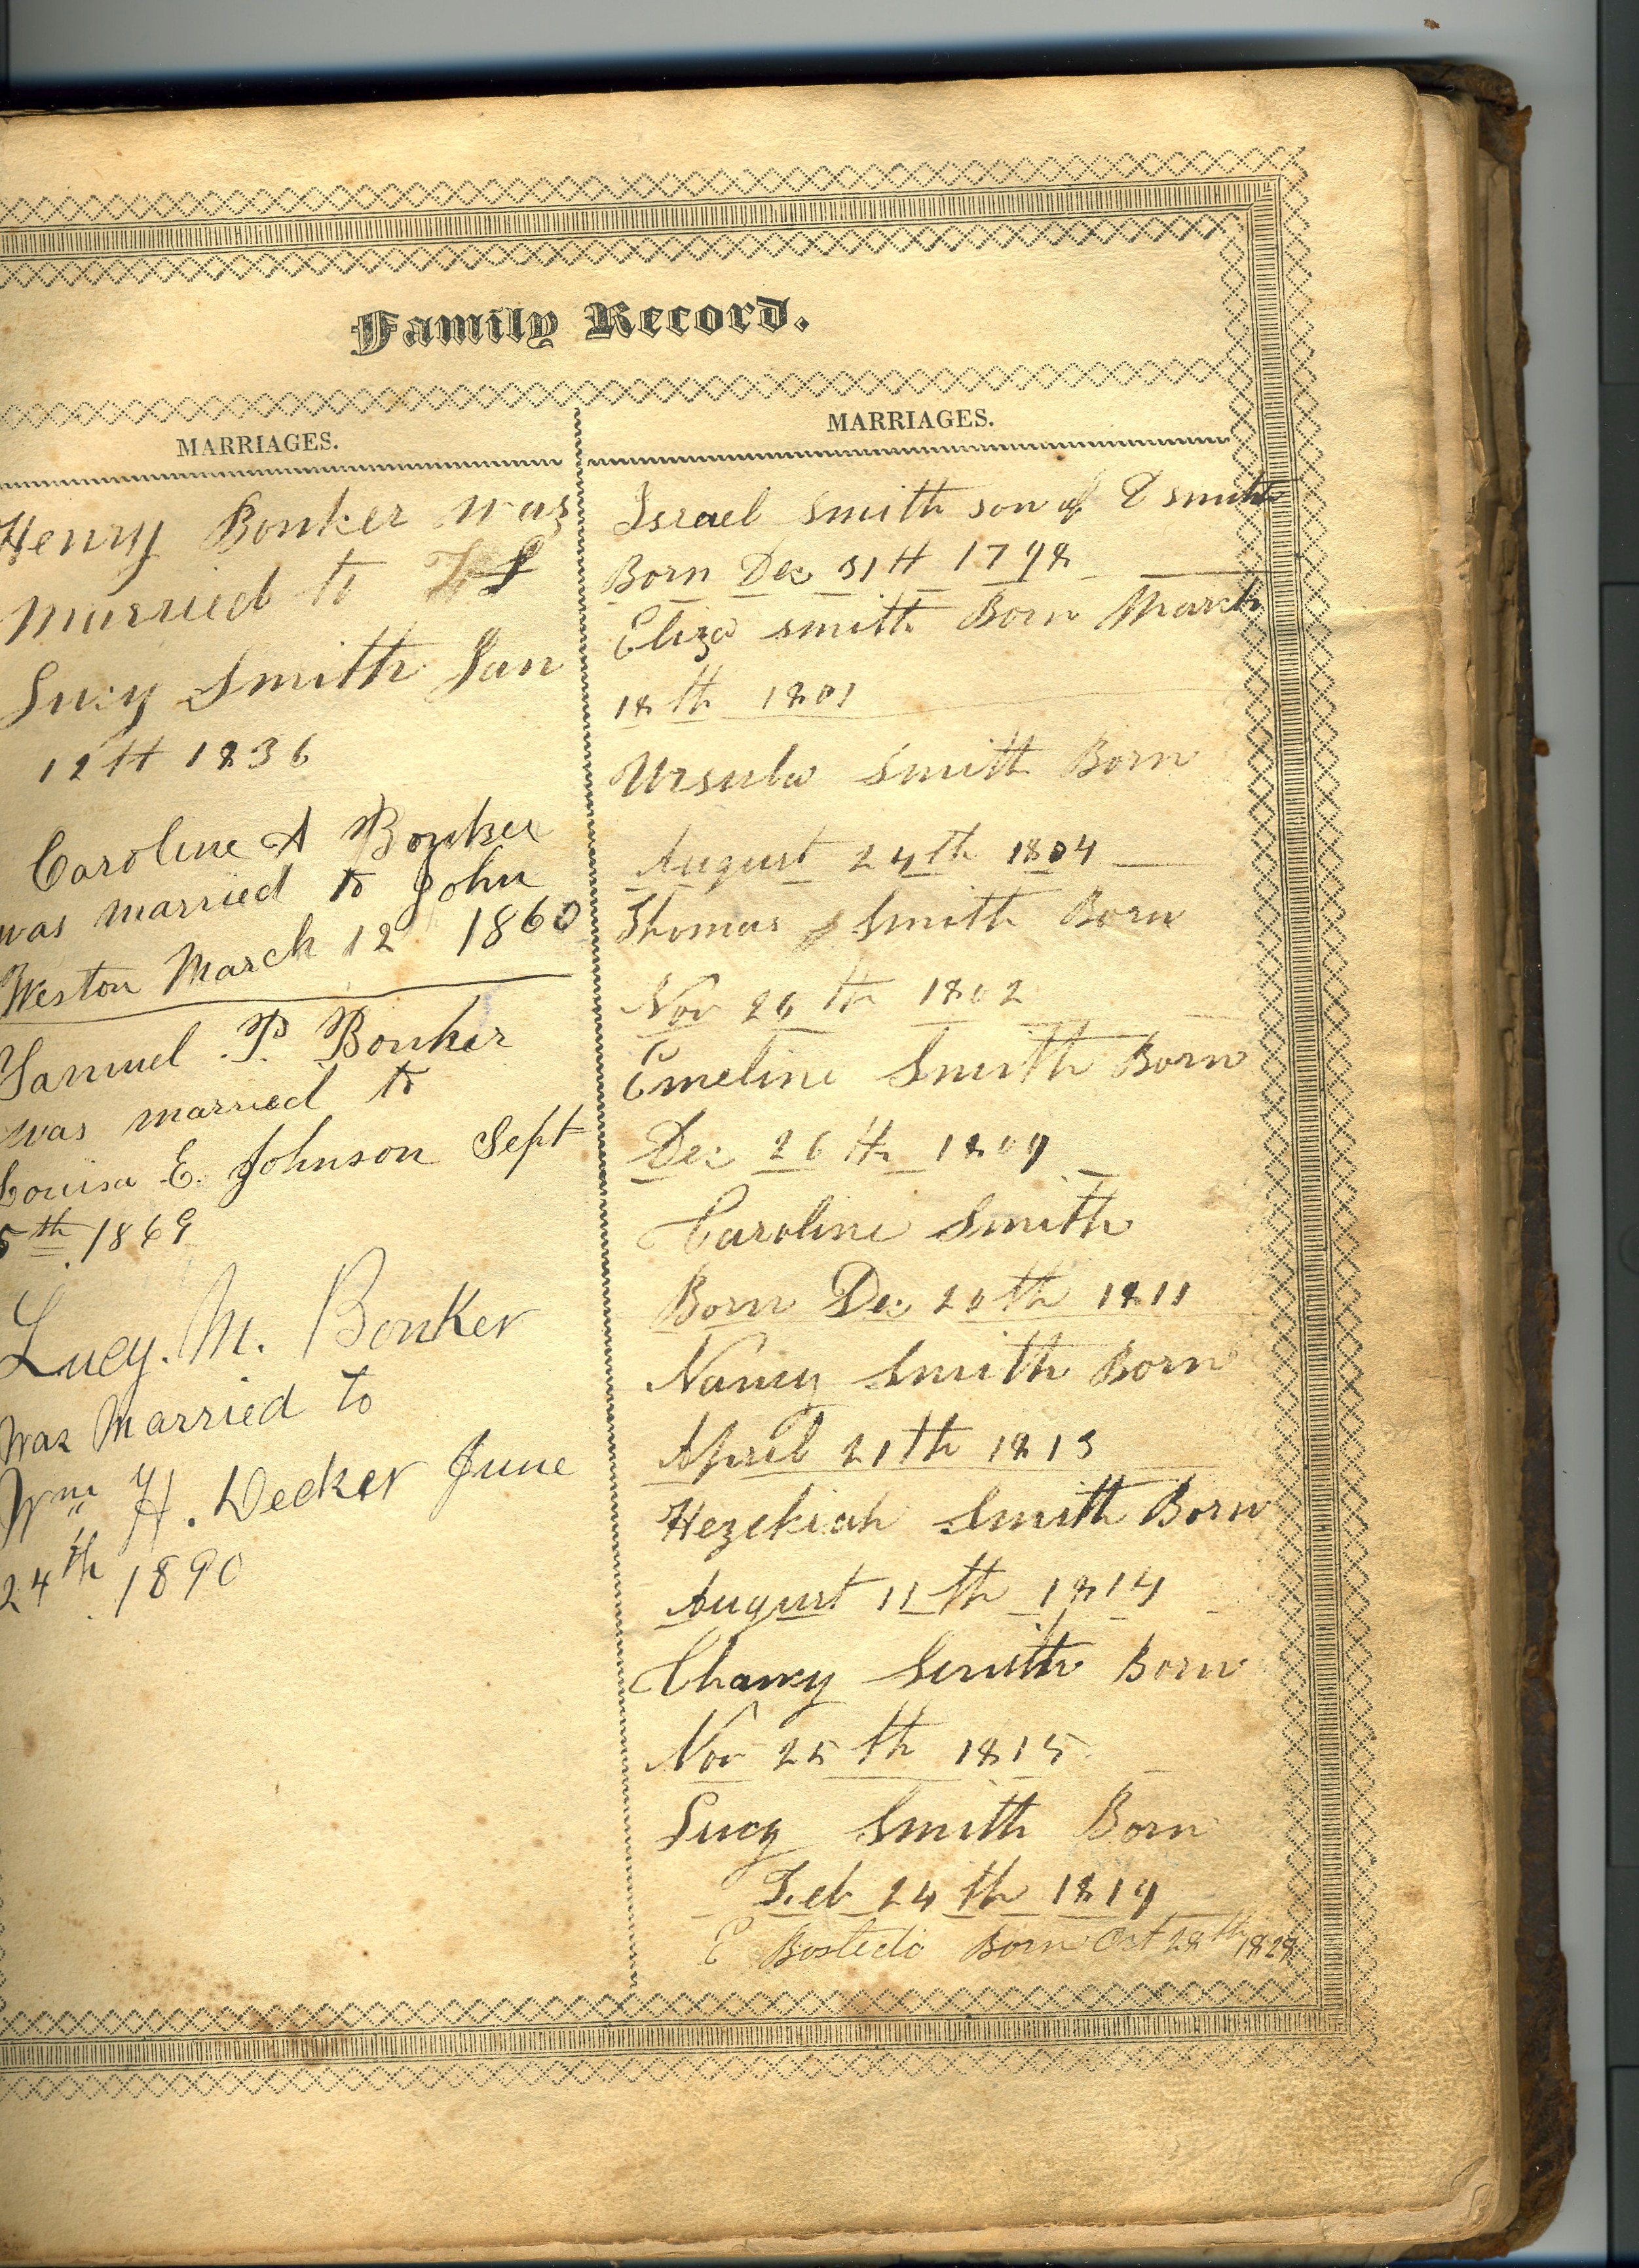 Family Record.
MARRIAGES.
Henry Bonker was
married to
Lucy Smith Jan
12th 1836
Caroline A Bonker
was married to John
Weston March 12 1860
Samuel P. Bonker
was married to
Louisa E. Johnson Sept
5th 1869
Lucy. M. Bonker
Was Married to
Wm H. Decker June
24th 1890
MARRIAGES.
Israel Smith son of E Smith
Born Dec 31th 1798
Eliza Smith Born March
18th 1801
Ursula Smith Born
August 24th 1804
Thomas Smith Born
Nov 26th 1802
Emeline Smith Born
Dec 26th 1809
Caroline Smith
Born Dec 20th 1811
Nancy Smith Born
April 21th 1813
Hezekiah Smith Born
August 11th 1814
Chancy Smith Born
Nov 25th 1815
Lucy Smith Born
Feb 24th 1819
E Bostedo Born Oct 28th 1828